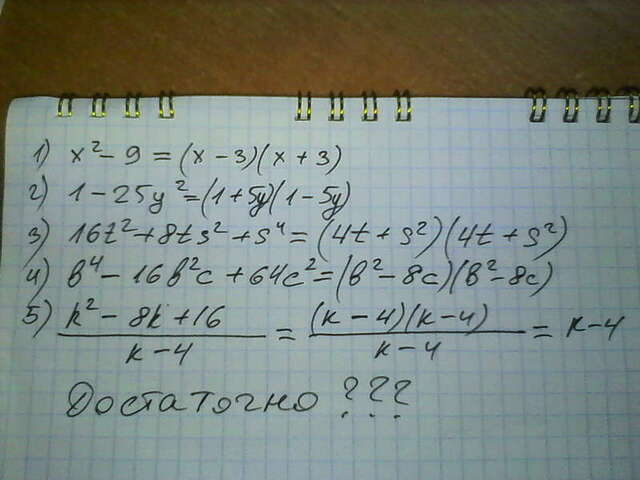 1) x² - 9 = (x - 3)(x + 3)
2) 1 - 25y² = (1 + 5y)(1 - 5y)
3) 16t² + 8ts² + s⁴ = (4t + s²)(4t + s²)
4) b⁴ - 16b²c + 64c² = (b² - 8c)(b² - 8c)
5) (k² - 8k + 16)/(k - 4) = ((k - 4)(k - 4))/(k - 4) = k - 4
Достаточно ???